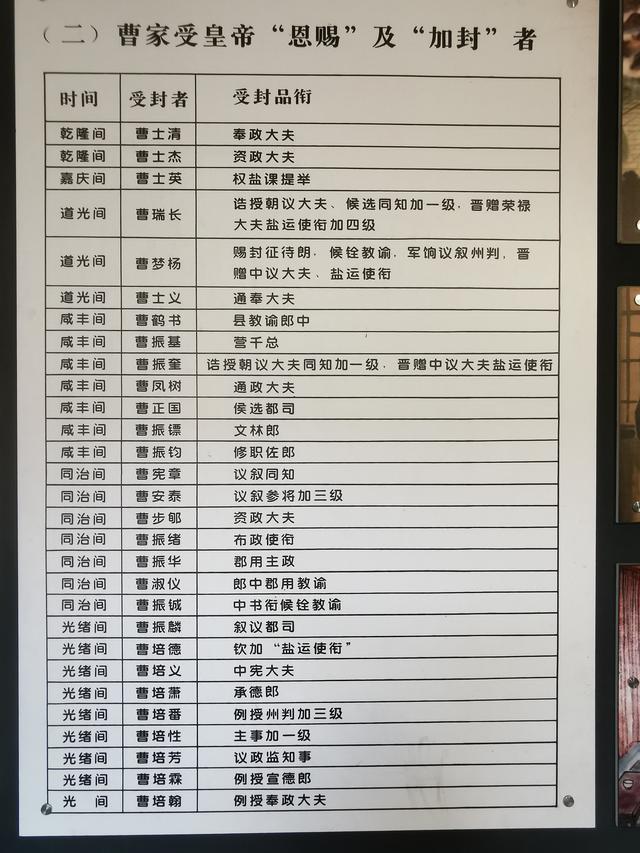 （二）曹家受皇帝“恩赐”及“加封”者
时间 受封者 受封品衔
乾隆间 曹士清 奉政大夫
乾隆间 曹士杰 资政大夫
嘉庆间 曹士英 权盐课提举
道光间 曹瑞长 诰授朝议大夫、候选同知加一级，晋赠荣禄
大夫盐运使衔加四级
道光间 曹梦杨 赐封征待朗，候铨教谕，军饷议叙州判，晋
赠中议大夫、盐运使衔
道光间 曹士义 通奉大夫
咸丰间 曹鹤书 县教谕郎中
咸丰间 曹振基 营千总
咸丰间 曹振奎 诰授朝议大夫同知加一级，晋赠中议大夫盐运使衔
咸丰间 曹凤树 通政大夫
咸丰间 曹正国 侯选都司
咸丰间 曹振镖 文林郎
咸丰间 曹振钧 修职佐郎
同治间 曹宪章 议叙同知
同治间 曹安泰 议叙参将加三级
同治间 曹步郇 资政大夫
同治间 曹振绪 布政使衔
同治间 曹振华 郡用主政
同治间 曹淑仪 郎中郡用教谕
同治间 曹振铖 中书衔候铨教谕
光绪间 曹振麟 叙议都司
光绪间 曹培德 钦加“盐运使衔”
光绪间 曹培义 中宪大夫
光绪间 曹培萧 承德郎
光绪间 曹培番 例授州判加三级
光绪间 曹培性 主事加一级
光绪间 曹培芳 议政监知事
光绪间 曹培霖 例授宣德郎
光 间 曹培翰 例授奉政大夫